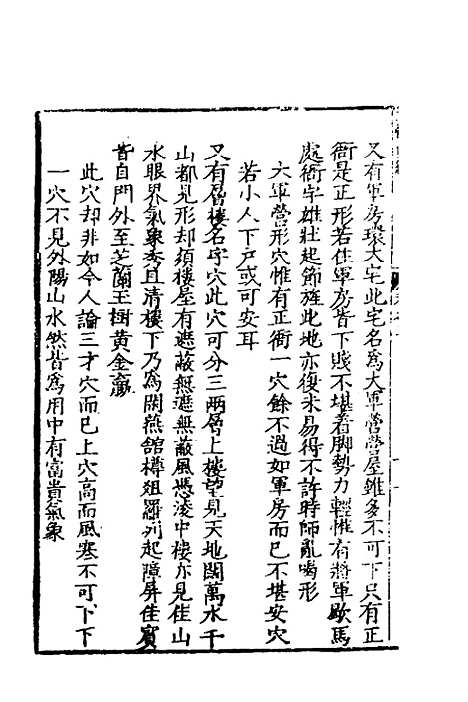 又有軍房環大宅此宅名為大軍營營屋雖多不可下只有正
衙是正形若住軍房皆下賤不堪着脚勢力輕惟有將軍歇馬
處衙字雄壯起節旌此地亦復未易得不許時師亂喝形
大軍營形穴惟有正衙一穴餘不過如軍房而已不堪安穴
若小人下户或可安耳
又有層樓名字穴此穴可分三兩層上樓望見天地闊萬水千
山都見形却須樓屋有遮蔽無遮無蔽風憑凌中樓亦見佳山
水眼界氣象秀且清樓下乃為開燕館樽俎羅列起障屏佳賓
皆自門外至芝蘭玉樹黄金
此穴却非如今人論三才穴而已上穴高而風寒不可下下
一穴不見外陽山水然皆為用中有富貴氣象